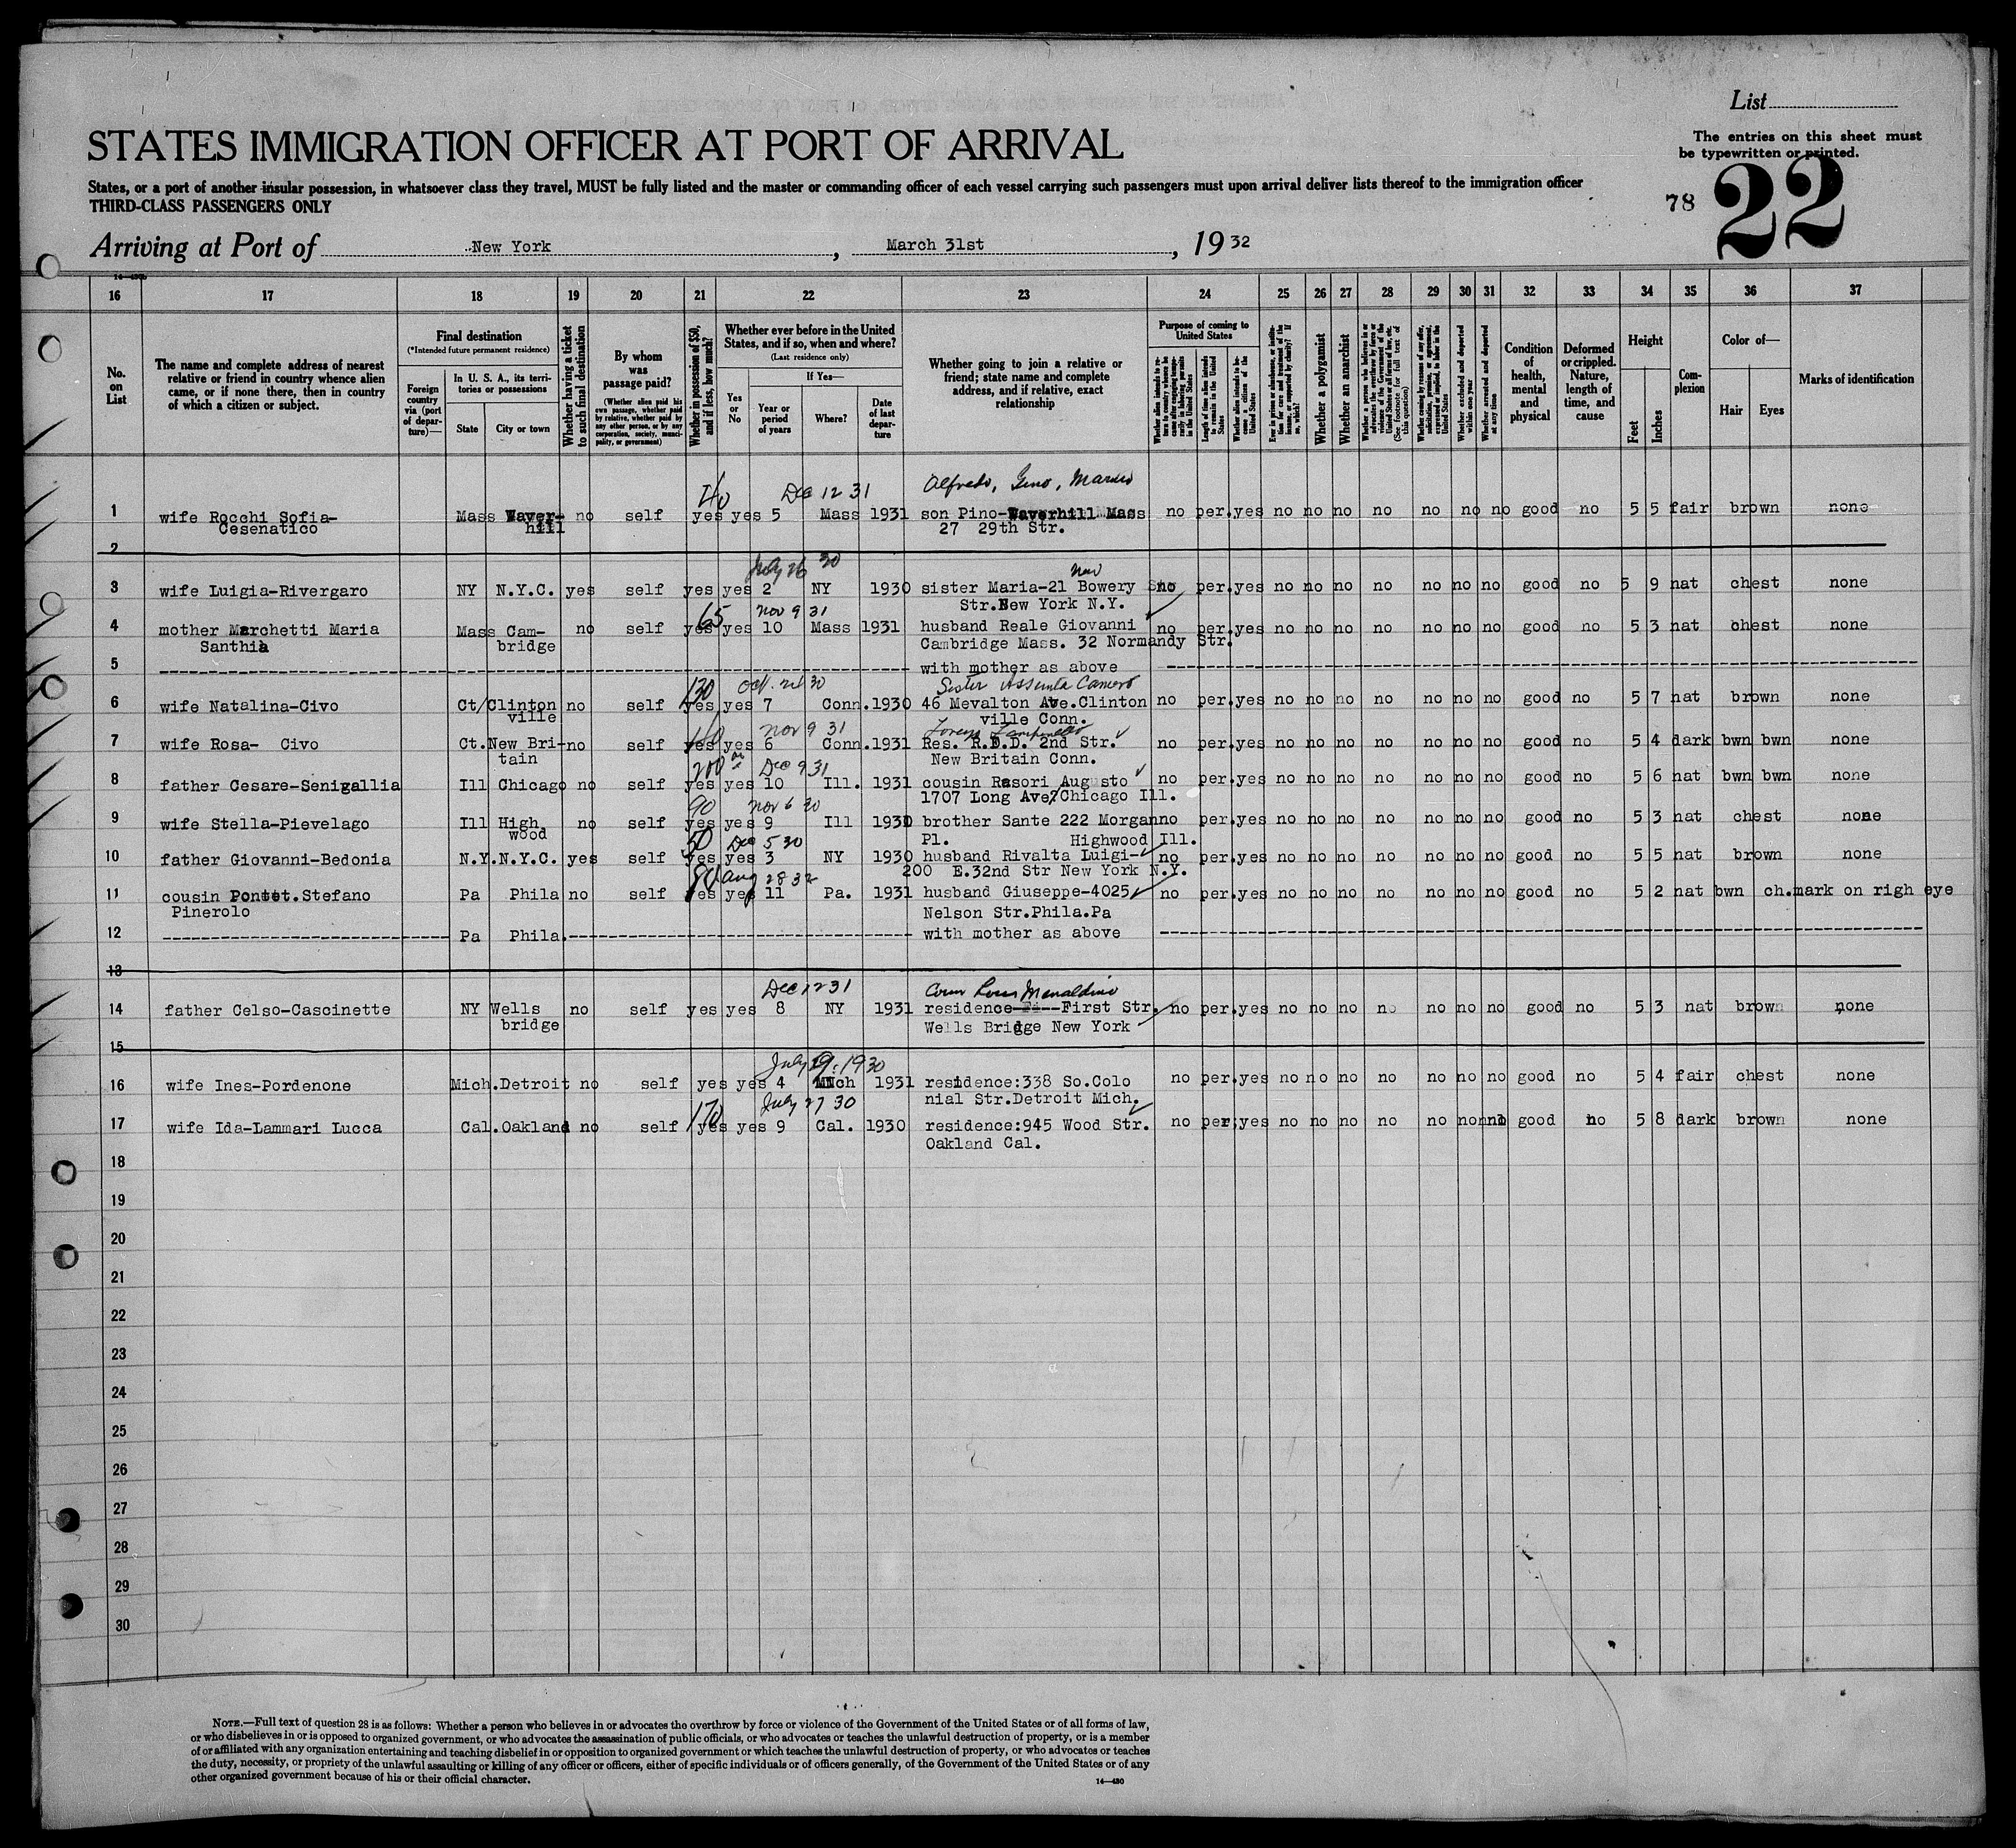 List
The entries on this sheet must
be typewritten or printed.
STATES IMMIGRATION OFFICER AT PORT OF ARRIVAL
States, or a port of another insular possession, in whatsoever class they travel, MUST be fully listed and the master or commanding officer of each vessel carrying such passengers must upon arrival deliver lists thereof to the immigration officer
THIRD-CLASS PASSENGERS ONLY
78 22
Arriving at Port of New York, March 31st, 1932
16 17 18 19 20 21 22 23 24 25 26 27 28 29 30 31 32 33 34 35 36 37
No. on List
The name and complete address of nearest relative or friend in country whence alien came, or if none there, then in country of which a citizen or subject.
Final destination
(*Intended future permanent residence)
Foreign country via (port of departure)—
In U. S. A., its territories or possessions
State
City or town
Whether having a ticket to such final destination
By whom was passage paid?
(Whether alien paid his own passage, whether paid by relative, whether paid by any other person, or by any corporation, society, municipality, or government)
Whether in possession of $50, and if less, how much?
Whether ever before in the United States, and if so, when and where?
(Last residence only)
If Yes—
Yes or No
Year or period of years
Where?
Date of last departure
Whether going to join a relative or friend; state name and complete address, and if relative, exact relationship
Purpose of coming to United States
Length of time alien intends to remain in the United States
Whether alien intends to become a citizen of the United States
Whether a polygamist
Whether an anarchist
(See footnote for full text of this question)
Whether excluded and deported within one year
Whether arrested and deported at any time
Condition of health, mental and physical
Deformed or crippled. Nature, length of time, and cause
Height
Feet
Inches
Complexion
Color of—
Hair
Eyes
Marks of identification
Dec 12 31 Alfredo, Gino,
1 wife Rocchi Sofia- Mass Waver- no self yes yes 5 Mass 1931 son Pino-Waverhill Mass no per. yes no no no no no no no good no 5 5 fair brown none
Cesenatico hill 27 29th Str.
2
July 26 30
3 wife Luigia-Rivergaro NY N.Y.C. yes self yes yes 2 NY 1930 sister Maria-21 Bowery no per. yes no no no no no no no good no 5 9 nat chest none
Str.New York N.Y.
65 Nov 9 31
4 mother Marchetti Maria Mass Cam- no self yes yes 10 Mass 1931 husband Reale Giovanni no per. yes no no no no no no no good no 5 3 nat chest none
Santhià bridge Cambridge Mass. 32 Normandy Str.
5 with mother as above
130 Oct. 30 Sister Assunta
6 wife Natalina-Civo Ct/Clinton no self yes yes 7 Conn. 1930 46 Mevalton Ave.Clinton no per. yes no no no no no no no good no 5 7 nat brown none
ville ville Conn.
Nov 9 31
7 wife Rosa- Civo Ct.New Bri- no self yes yes 6 Conn. 1931 Res. R.D.D. 2nd Str. no per. yes no no no no no no no good no 5 4 dark bwn bwn none
tain New Britain Conn.
200 Dec 9 31
8 father Cesare-Senigallia Ill Chicago no self yes yes 10 Ill. 1931 cousin Rasori Augusto no per. yes no no no no no no no good no 5 6 nat bwn bwn none
1707 Long Ave, Chicago Ill.
90 Nov 6 30
9 wife Stella-Pievelago Ill High no self yes yes 9 Ill brother Sante 222 Morgan no per. yes no no no no no no no good no 5 3 nat chest none
wood Pl. Highwood Ill.
50 Dec 5 30
10 father Giovanni-Bedonia N.Y. N.Y.C. yes self yes yes 3 NY 1930 husband Rivalta Luigi- no per. yes no no no no no no no good no 5 5 nat brown none
200 E.32nd Str New York N.Y.
Aug 28 32
11 cousin Stefano Pa Phila no self yes yes 11 Pa. 1931 husband Giuseppe-4025 no per. yes no no no no no no no good no 5 2 nat bwn ch. mark on righ eye
Pinerolo Nelson Str.Phila.Pa
12 Pa Phila. with mother as above
13
Dec 12 31
14 father Celso-Cascinette NY Wells no self yes yes 8 NY 1931 residence First Str. no per. yes no no no no no no no good no 5 3 nat brown none
bridge Wells Bridge New York
15
July 19. 1930
16 wife Ines-Pordenone Mich. Detroit no self yes yes 4 1931 residence:338 So.Colo no per. yes no no no no no no no good no 5 4 fair chest none
nial Str.Detroit Mich.
170 July 27 30
17 wife Ida-Lammari Lucca Cal. Oakland no self yes yes 9 Cal. 1930 residence:945 Wood Str. no per. yes no no no no no no good no 5 8 dark brown none
Oakland Cal.
18
19
20
21
22
23
24
25
26
27
28
29
30
NOTE.—Full text of question 28 is as follows: Whether a person who believes in or advocates the overthrow by force or violence of the Government of the United States or of all forms of law,
or who disbelieves in or is opposed to organized government, or who advocates the assassination of public officials, or who advocates or teaches the unlawful destruction of property, or is a member
of or affiliated with any organization entertaining and teaching disbelief in or opposition to organized government or which teaches the unlawful destruction of property, or who advocates or teaches
the duty, necessity, or propriety of the unlawful assaulting or killing of any officer or officers, either of specific individuals or of officers generally, of the Government of the United States or of any
other organized government because of his or their official character.
14—430